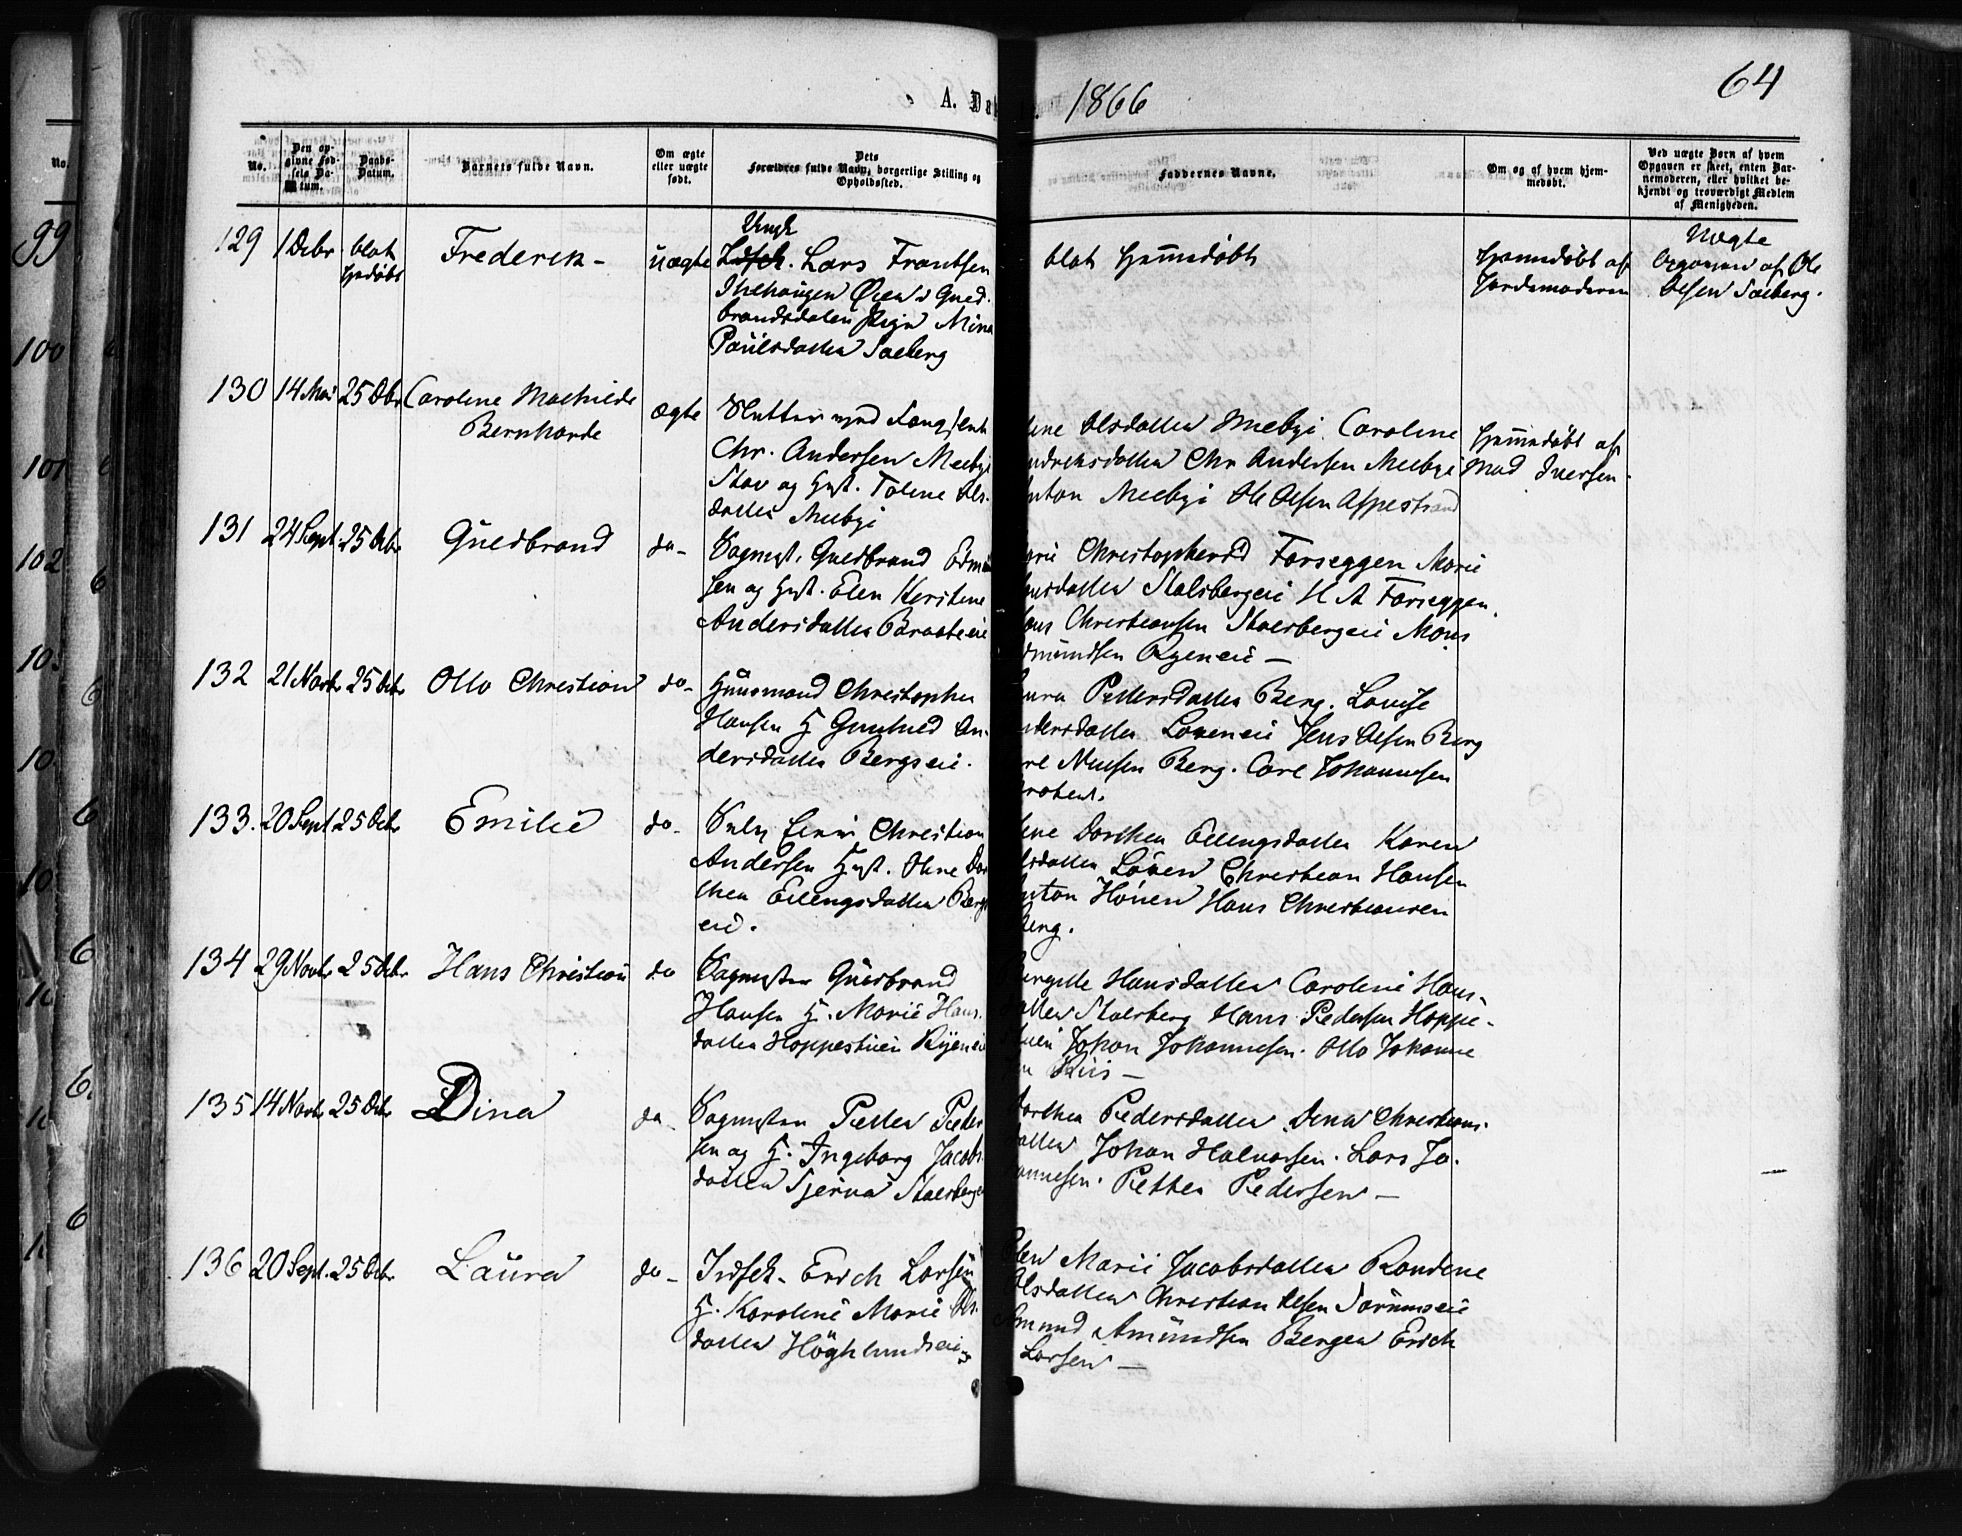 64
A. Da 1866
No.
Den op-
givne Fød-
sels Da-
tum.
Daabs-
Datum.
Barnets fulde Navn.
Om ægte
eller uægte
født.
Dets
Forældres fulde Navn, borgerlige Stilling og
Opholdssted.
Faddernes Navne.
Om og af hvem hjem-
medøbt.
Ved uægte Børn af hvem
Opgaven er skeet, enten Bar-
nemoderen, eller hvilket be-
kjendt og troværdigt Medlem
af Menigheden.
129 1 Debr blot
hjdøbt
Frederik -
uægte
Ungk
Lars Frantsen
Øien i Gued-
brandsdalen Pige Mina
Paulsdatter Soeberg
blot hjemmedøbt
hjemmedøbt af
Jordemoderen
Uægte
Opgaven af Ole
Olsen Soeberg.
130 14 Mai 25 Dbr Caroline Mathilde
Bernharde
ægte
Chr. Andersen Meeby
og Hust. Toline Ols-
datter Meebye
line Olsdatter Meebye Caroline
ndreksdatter Chr Andersen Meebye
nton Meebye Ole Olsen Aspestrand
hjemmedøbt af
Mad Iversen
131 24 Sept. 25 Debr Guedbrand do-
Sagmst. Guedbrand Edm
sen og Hust. Elen Kirstine
Andersdatter Braateeie
arie Christophersd Forseggen Marie
ansdatter Stalsbergeie H A Forseggen.
ans Christiansen Stalsbergeie Mons
dmundsen Ryeneie -
132 21 Novbr 25 Debr Otto Christian do-
Huusmand Christopher
Hansen H Gunhild An-
dersdatter Bergseie.
aura Pettersdatter Berg. Lovise
ndersdatter Loveneie Jens Olsen Berg
Nielsen Berg. Carl Johannesen
133. 20 Sept 25 Debr Emilie do-
Selv Eier Christian
Andersen Hust. Oline Dor
thea Ellingsdatter Bergs
eie.
line Dorthea Ellingsdatter Karen
lsdatter Löven Christian Hansen
nton Hönen Hans Christiansen
Berg.
134 29 Novbr 25 Debr Hans Christian do
Sagmster Guedbrand
Hansen H. Marie Hans-
datter Hoppestuen Ryeneie
Bergitte Hansdatter Caroline Hans-
datter Stalsberg Hans Pedersen Hoppe-
stuen Johan Johannesen. Otto Johanne
sen Riis -
135 14 Novbr 25 Debr Dina do-
Sagmsten Petter Peder
sen og H. Ingeborg Jacobs-
datter Tjerna Stalsberge
Dorthea Pedersdatter Dina Christians-
datter Johan Halvorsen. Lars Jo-
hannesen. Petter Pedersen -
136 20 Sept. 25 Debr Laura do-
Indsk. Erich Larsen
H. Karoline Marie Ols-
datter Höghlundseie
Elen Marie Jacobsdatter Randine
Olsdatter Christian Olsen Sörumseie
Amund Amundsen Bergen Erich
Larsen -